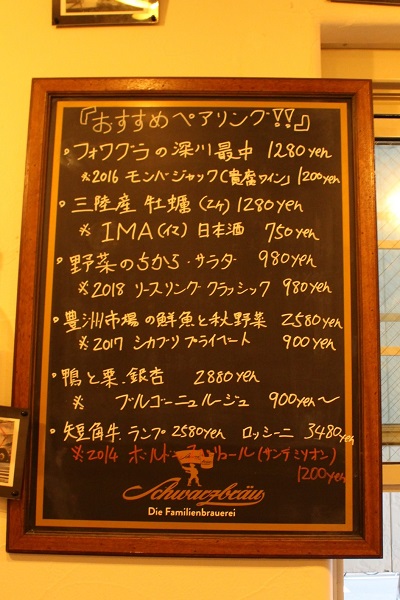 『おすすめペアリング!!』
・フォワグラの深川最中 1280yen
※2016 モンバージャック(貴腐ワイン) 1200yen
・三陸産 牡蠣(2ケ) 1280yen
※ IMA(イマ) 日本酒 750yen
・野菜のちから・サラダ 980yen
※2018 リースリング クラッシック 980yen
・豊洲市場の鮮魚と秋野菜 2580yen
※2017 シャブリ プライベート 900yen
・鴨と栗.銀杏 2880yen
※ ブルゴーニュルージュ 900yen〜
・短角牛.ランプ2580yen ロッシーニ 3480yen
※2014 ボルドー (サンテミリオン)
1200yen
Schwarzbräu
Die Familienbrauerei